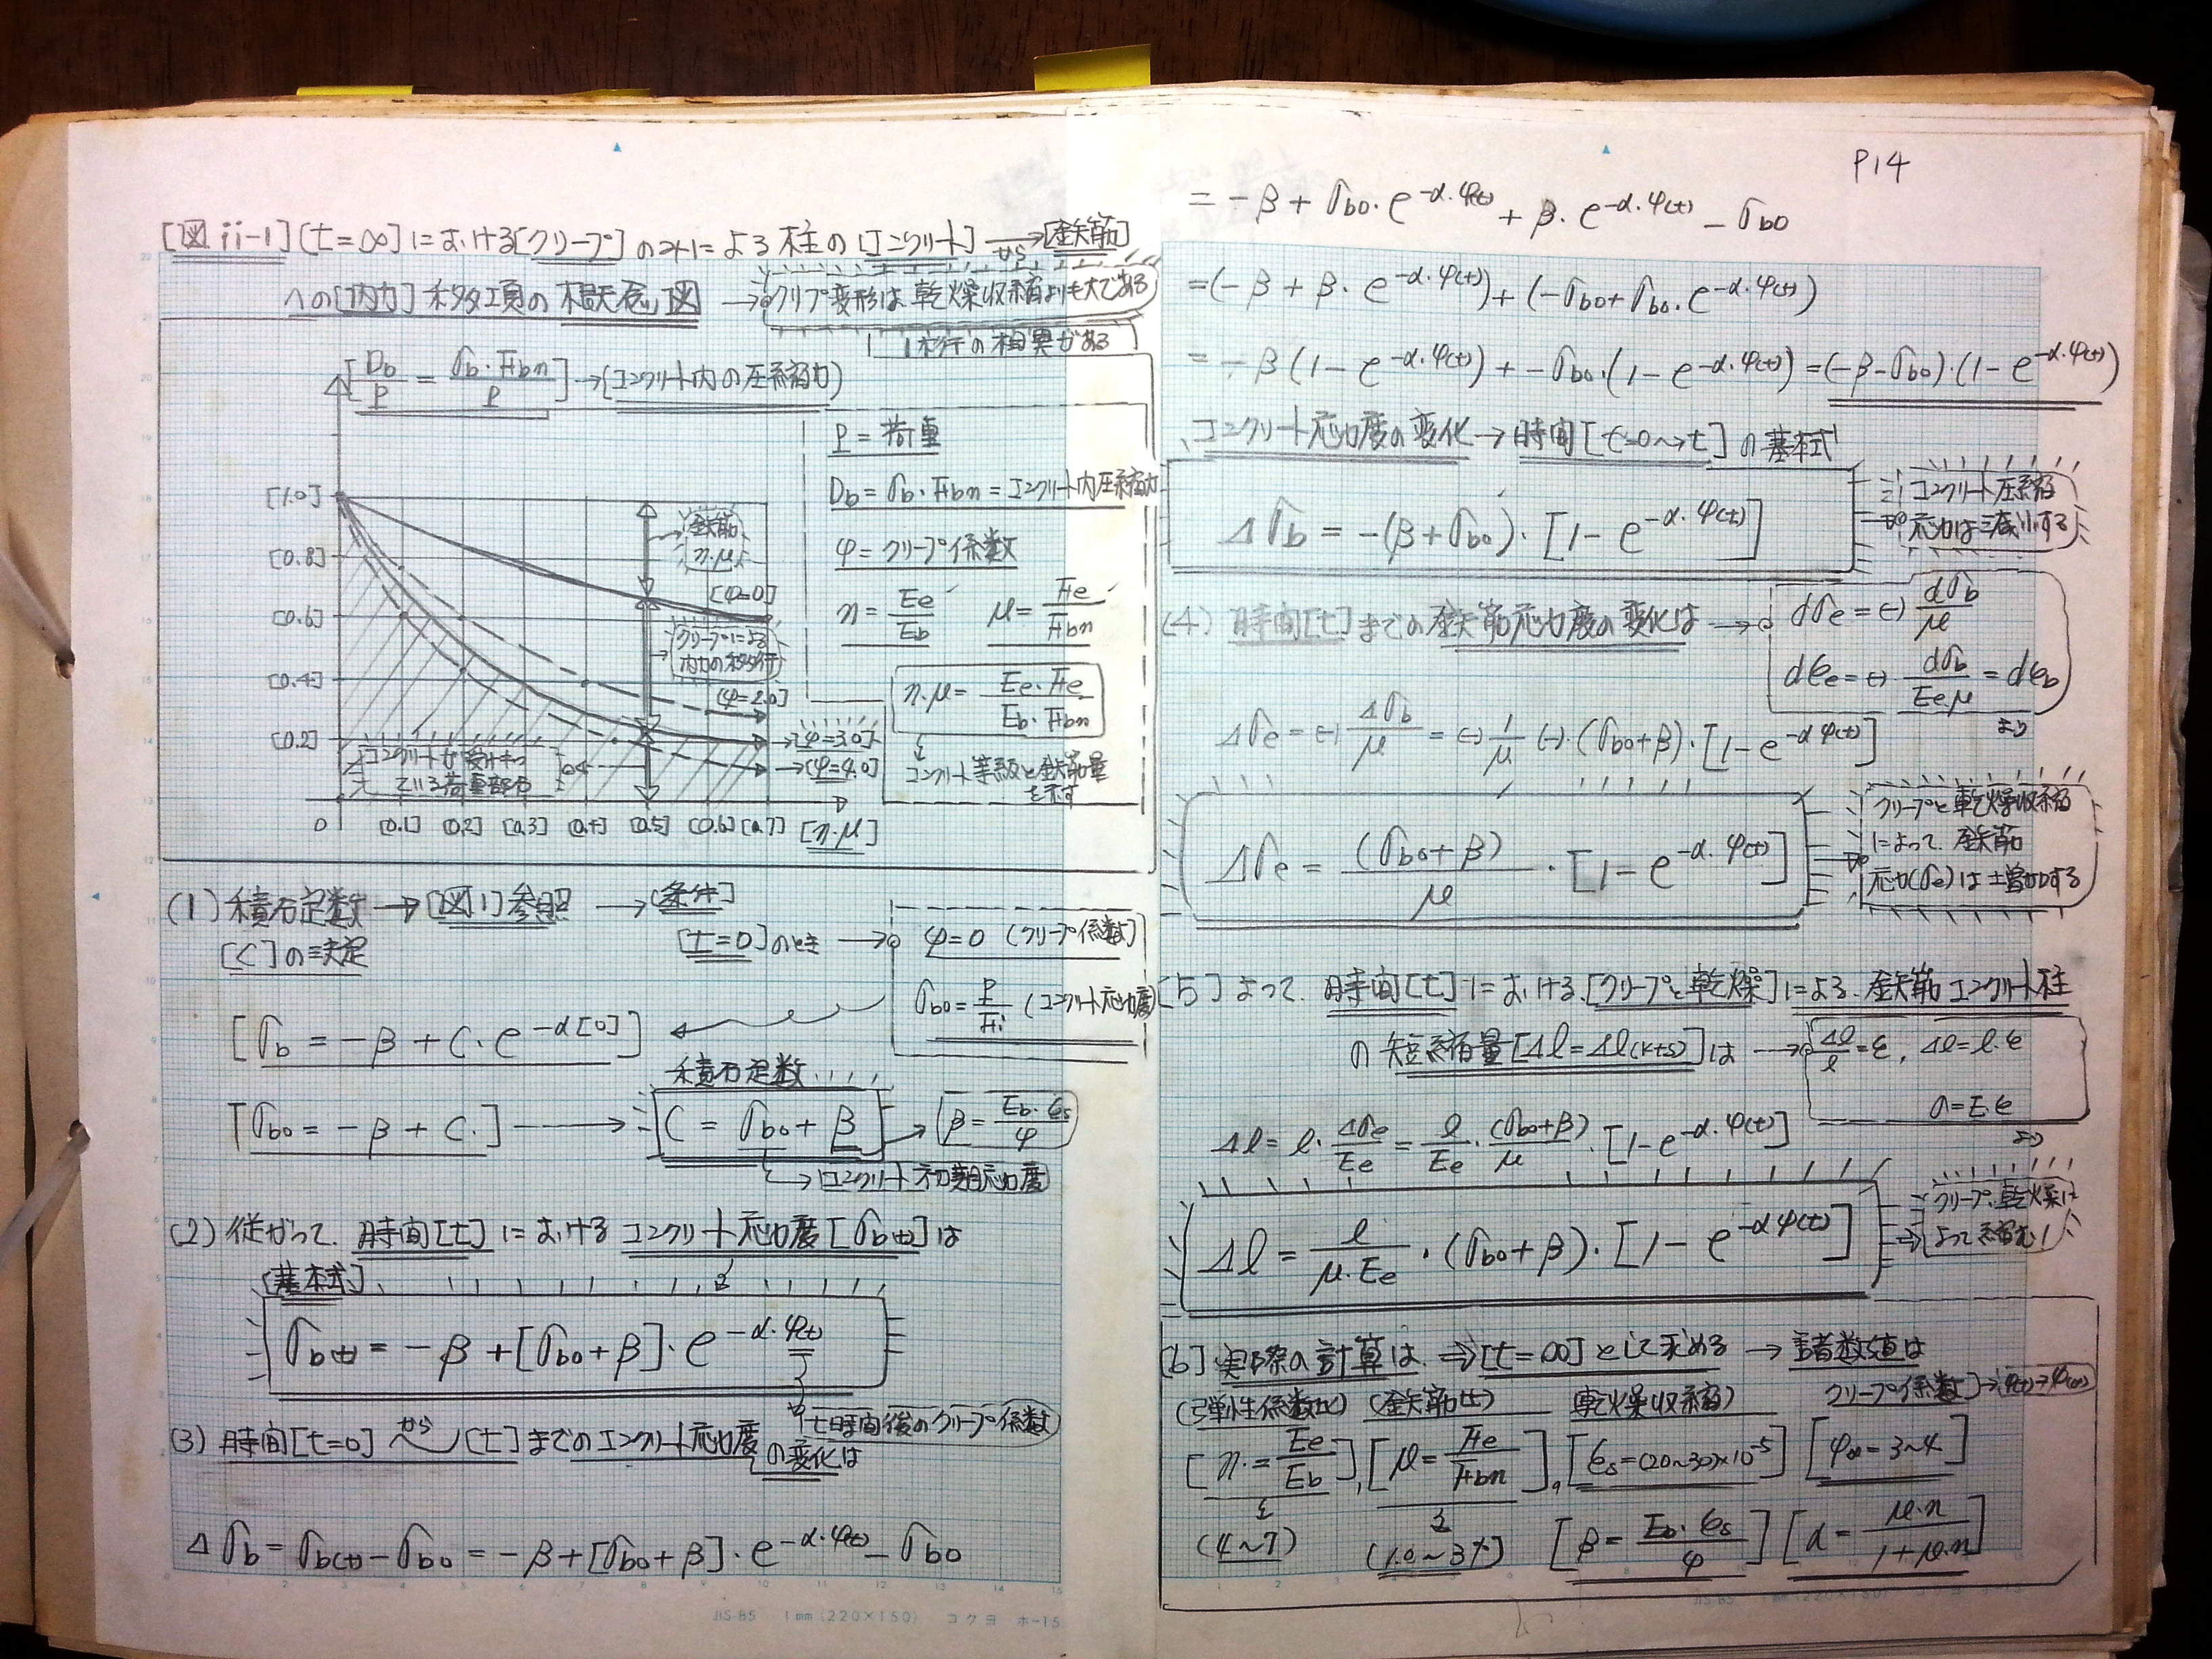 [図 ii-1] [t=∞]における[クリープ]のみによる柱の[コンクリート]から→[鉄筋]
への[内力]移項の概念図 → クリープ変形は乾燥収縮よりも大である
1桁の相異がある
[Db/P = σb・Fbn/P] → (コンクリート内の圧縮力)
P = 荷重
Db = σb・Fbn = コンクリート内圧縮力
φ = クリープ係数
n = Ee/Eb μ = Fe/Fbn
n・μ = Ee・Fe/Eb・Fbn
コンクリート等級と鉄筋量を示す
[1.0]
[0.8]
[0.6]
[0.4]
[0.2]
鉄筋 n・μ
[φ=0]
クリープによる
内力の移行
(φ=2.0)
→[φ=3.0]
→(φ=4.0)
コンクリートが受けもっ
ている荷重部分
0 [0.1] [0.2] [0.3] [0.4] [0.5] [0.6] [0.7] [n・μ]
(1) 積分定数 → [図1]参照 → (条件)
[C]の決定
[t=0]のとき → φ=0 (クリープ係数)
σb0 = P/Fi (コンクリート応力度)
[σb = -β + C・e^-α[0]]
積分定数
[σb0 = -β + C・] → C = σb0 + β → β = Eb・εs/φ
→ コンクリート初期応力度
(2) 従がって、時間[t]における コンクリート応力度[σb(t)]は
[基本式]
σb(t) = -β + [σb0 + β]・e^-α・φ(t)
t時間後のクリープ係数
(3) 時間[t=0]から[t]までのコンクリート応力度の変化は
Δσb = σb(t) - σb0 = -β + [σb0 + β]・e^-α・φ(t) - σb0
P14
= -β + σb0・e^-α・φ(t) + β・e^-α・φ(t) - σb0
= (-β + β・e^-α・φ(t)) + (-σb0 + σb0・e^-α・φ(t))
= -β(1 - e^-α・φ(t)) + -σb0・(1 - e^-α・φ(t)) = (-β-σb0)・(1 - e^-α・φ(t))
コンクリート応力度の変化 → 時間[t=0～t]の基本式
Δσb = -(β+σb0)・[1 - e^-α・φ(t)]
コンクリート圧縮
応力は減少する
(4) 時間[t]までの鉄筋応力度の変化は → dσe = (-) dσb/μ
dεe = (-) dσb/Ee・μ = dεb
より
Δσe = (-) Δσb/μ = (-) 1/μ (-)・(σb0+β)・[1 - e^-α・φ(t)]
Δσe = (σb0+β)/μ・[1 - e^-α・φ(t)]
クリープと乾燥収縮
によって、鉄筋
応力(σe)は増加する
[5] よって、時間[t]における[クリープと乾燥]による、鉄筋コンクリート柱
の短縮量[Δl=Δl(k+s)]は → Δl/l = ε, Δl = l・ε
σ = E・ε
より
Δl = l・Δσe/Ee = l/Ee・(σb0+β)/μ・[1 - e^-α・φ(t)]
Δl = l/μ・Ee・(σb0+β)・[1 - e^-αφ(t)]
クリープ、乾燥に
よって縮む!
[6] 実際の計算は ⇒ [t=∞]として求める → 諸数値は
(弾性係数比) (鉄筋比) 乾燥収縮) クリープ係数] → φ(t)→φ(∞)
[n = Ee/Eb], [μ = Fe/Fbn], [εs = (20～30)×10^-5] [φ∞ = 3～4]
(4～7) (1.0～3%) [β = Eb・εs/φ] [α = μ・n/1+μ・n]
JIS-B5 1mm (220×150) コクヨ ホ-15